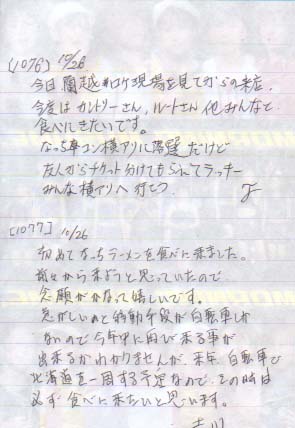 (1076) 10/26
今日蘭越#ロケ現場を見てからの来店。
今度はカントリーさん、ルートさん他みんなと
食べにきたいです。
なっち単コン横アリに落選だけど
友人からチケット分けてもらってラッキー
みんな横アリへ行こう
[1077] 10/26
初めてなっちラーメンを食べに来ました。
前々から来ようと思っていたので
念願がかなって嬉しいです。
悲しいかな移動手段が自転車しか
なので今年中に再び来る事が
出来るかわかりませんが、来年、自転車で
北海道を一周する予定なので、その時は
必ず食べに来たいと思います。